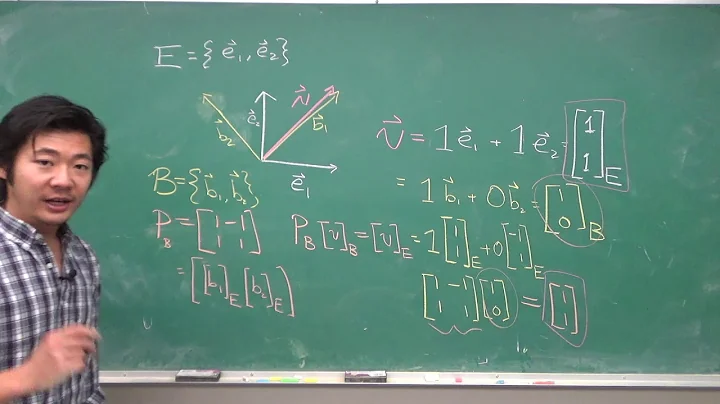 E = {e⃗₁, e⃗₂}
v⃗
b⃗₂
e⃗₂
b⃗₁
e⃗₁
v⃗ = 1e⃗₁ + 1e⃗₂ = [1 1]_E
= 1b⃗₁ + 0b⃗₂ = [1 0]_B
B = {b⃗₁, b⃗₂}
P_B = [1 -1
1 1]
= [[b₁]_E [b₂]_E]
P_B [v]_B = [v]_E = 1[1 1]_E + 0[-1 1]_E
[1 -1
1 1] [1 0] = [1 1]